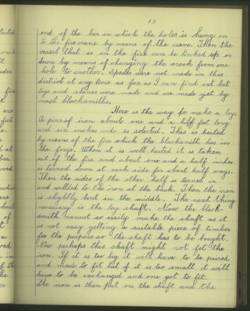 13
end of the bar in which the holes is hung on
to the for means by means of the same. Then the
vessel that is on the fire can be hitched up or
down by means of changing the crook from one
hole to another. Spades were not made in this
district at any time as far as I can find out but
loys and slanes were made and are made yet by
most blacksmiths.
Here is the way to make a loy.
A piece of iron about one and a half feet long
and six inches wide is selected. This is heated
by means of the fire which the blacksmith has in
the forge. When it is well heated it is taken
out of the fire and about one and a half inches
is turned down at each side for about half ways.
Then the sides of the other half is turned in
and welded to the iron at the back. Then the iron
is slightly bent in the middle. The next thing
necessary is the loy shaft. Now the black-
smith cannot so easily make the shaft as it
is not easy getting a suitable piece of timber
for the purpose so the shaft has to be bought.
Now perhaps this shaft might not fit the
iron. If it is too big it will have to be paired
and made to fit but if it is too small it will
have to be exchanged and one got to fit.
The iron is then put on the shaft and the